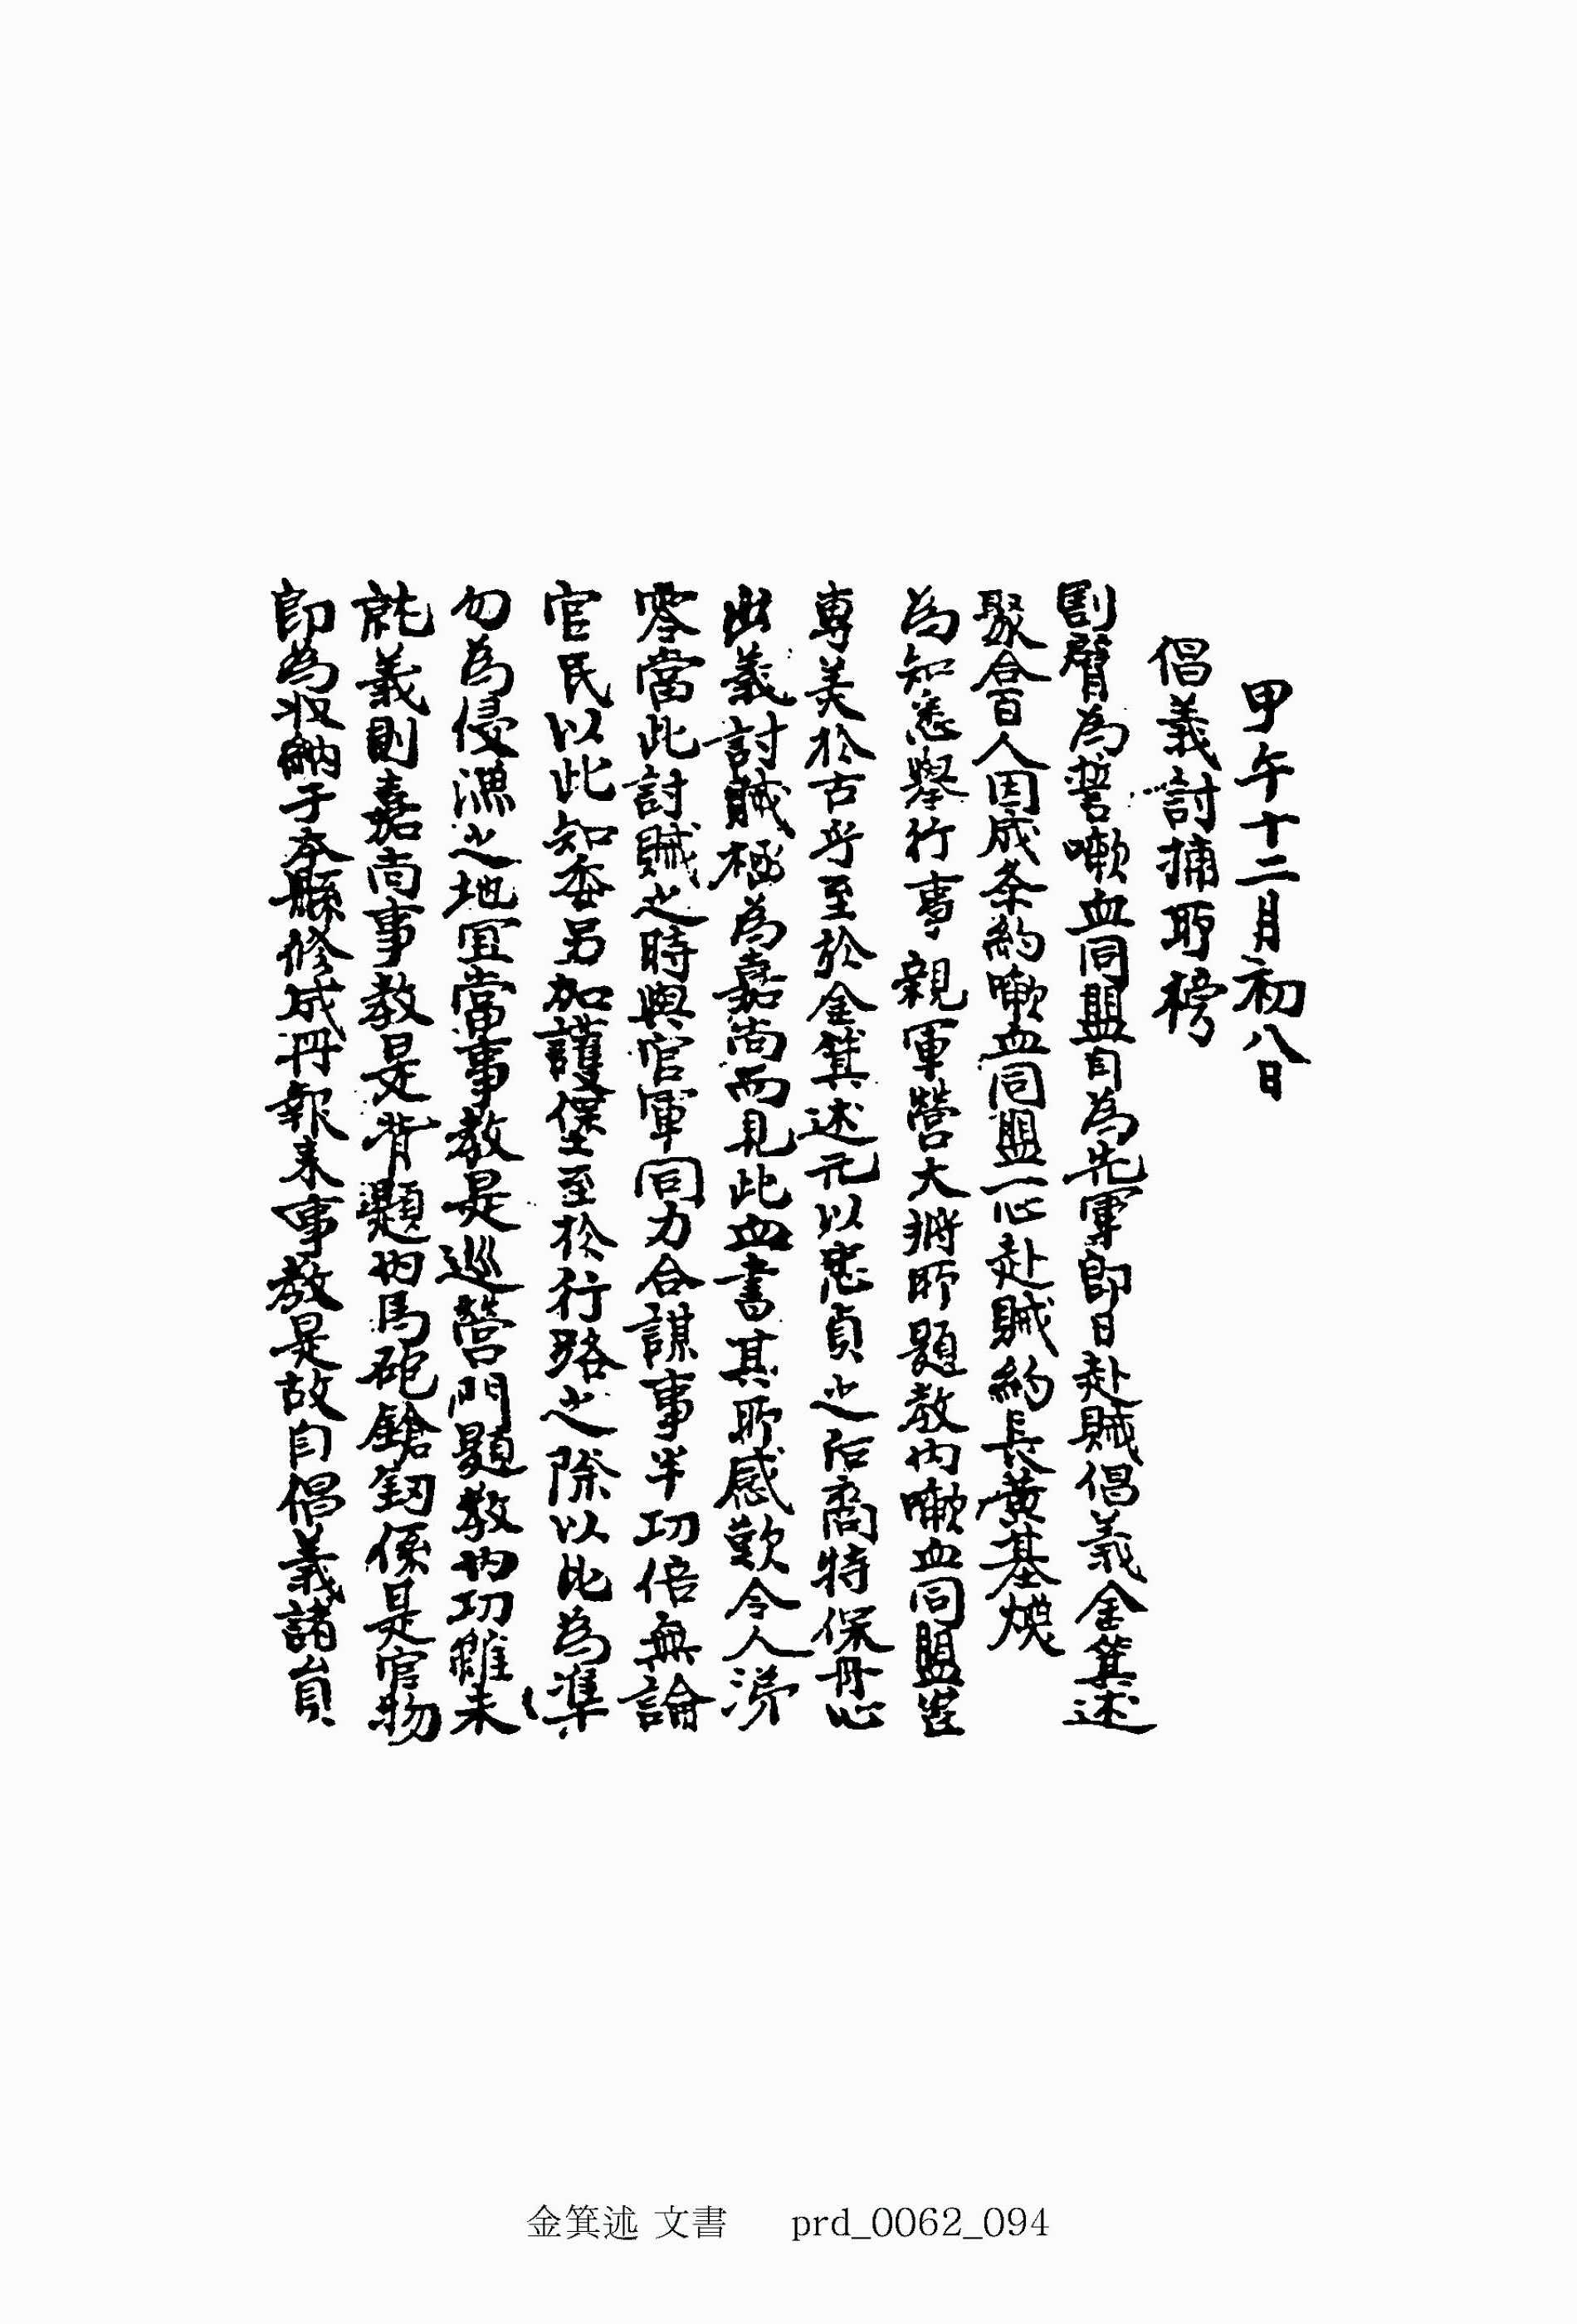 甲午十二月初八日
倡義討捕所榜
割臂為誓嗽血同盟自為先軍即日赴賊倡義金箕述
聚合百人因成条約嗽血同盟一心赴賊約長黃基煥
為知悉擧行事 親軍營大將所題教內嗽血同盟豈
專美於古乎至於金箕述元以忠貞之后裔特保丹心
出義討賊極為嘉尚而見此血書其所感歎令人涕
零當此討賊之時與官軍同力合謀事半功倍無論
官民以此知委另加護傑至於行路之際以此為準
勿為侵漁之地宜當事教是巡營門題教內功雖未
就義則嘉尚事教是背題內馬砲鎗釰係是官物
即為收納于本縣修成冊報来事教是故自倡義諸員
金箕述 文書 prd_0062_094